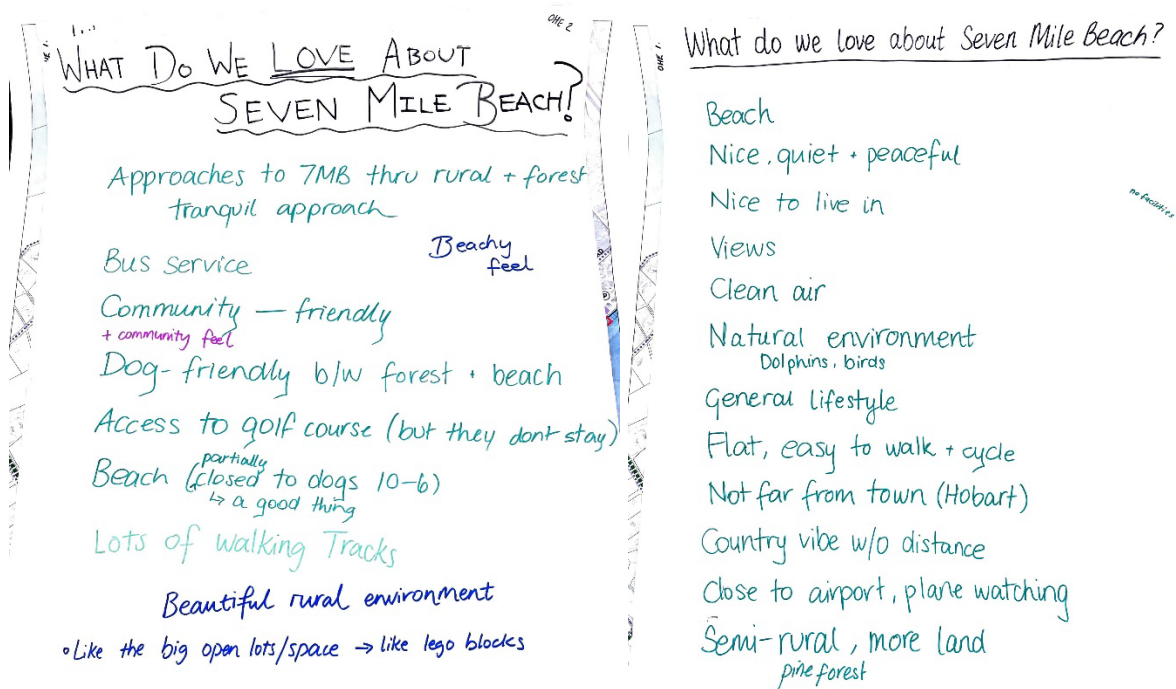 OHE 2
WHAT DO WE LOVE ABOUT
SEVEN MILE BEACH?
Approaches to 7MB thru rural + forest
tranquil approach
Beachy
feel
Bus service
Community — friendly
+ community feel
Dog-friendly b/w forest + beach
Access to golf course (but they dont stay)
partially
Beach (closed to dogs 10-6)
↳ a good thing
Lots of walking Tracks
Beautiful rural environment
• Like the big open lots/space → like lego blocks
OHE 1.
What do we love about Seven Mile Beach?
Beach
Nice, quiet + peaceful
no facilities
Nice to live in
Views
Clean air
Natural environment
Dolphins, birds
General lifestyle
Flat, easy to walk + cycle
Not far from town (Hobart)
Country vibe w/o distance
Close to airport, plane watching
Semi-rural, more land
pine forest